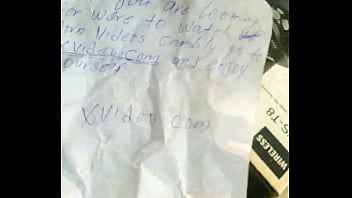 you are Looking
or were to watch
rn Videos Candily go to
XVideo.Com and Enjoy
ourself
XVideo com
WIRELESS
S-T8